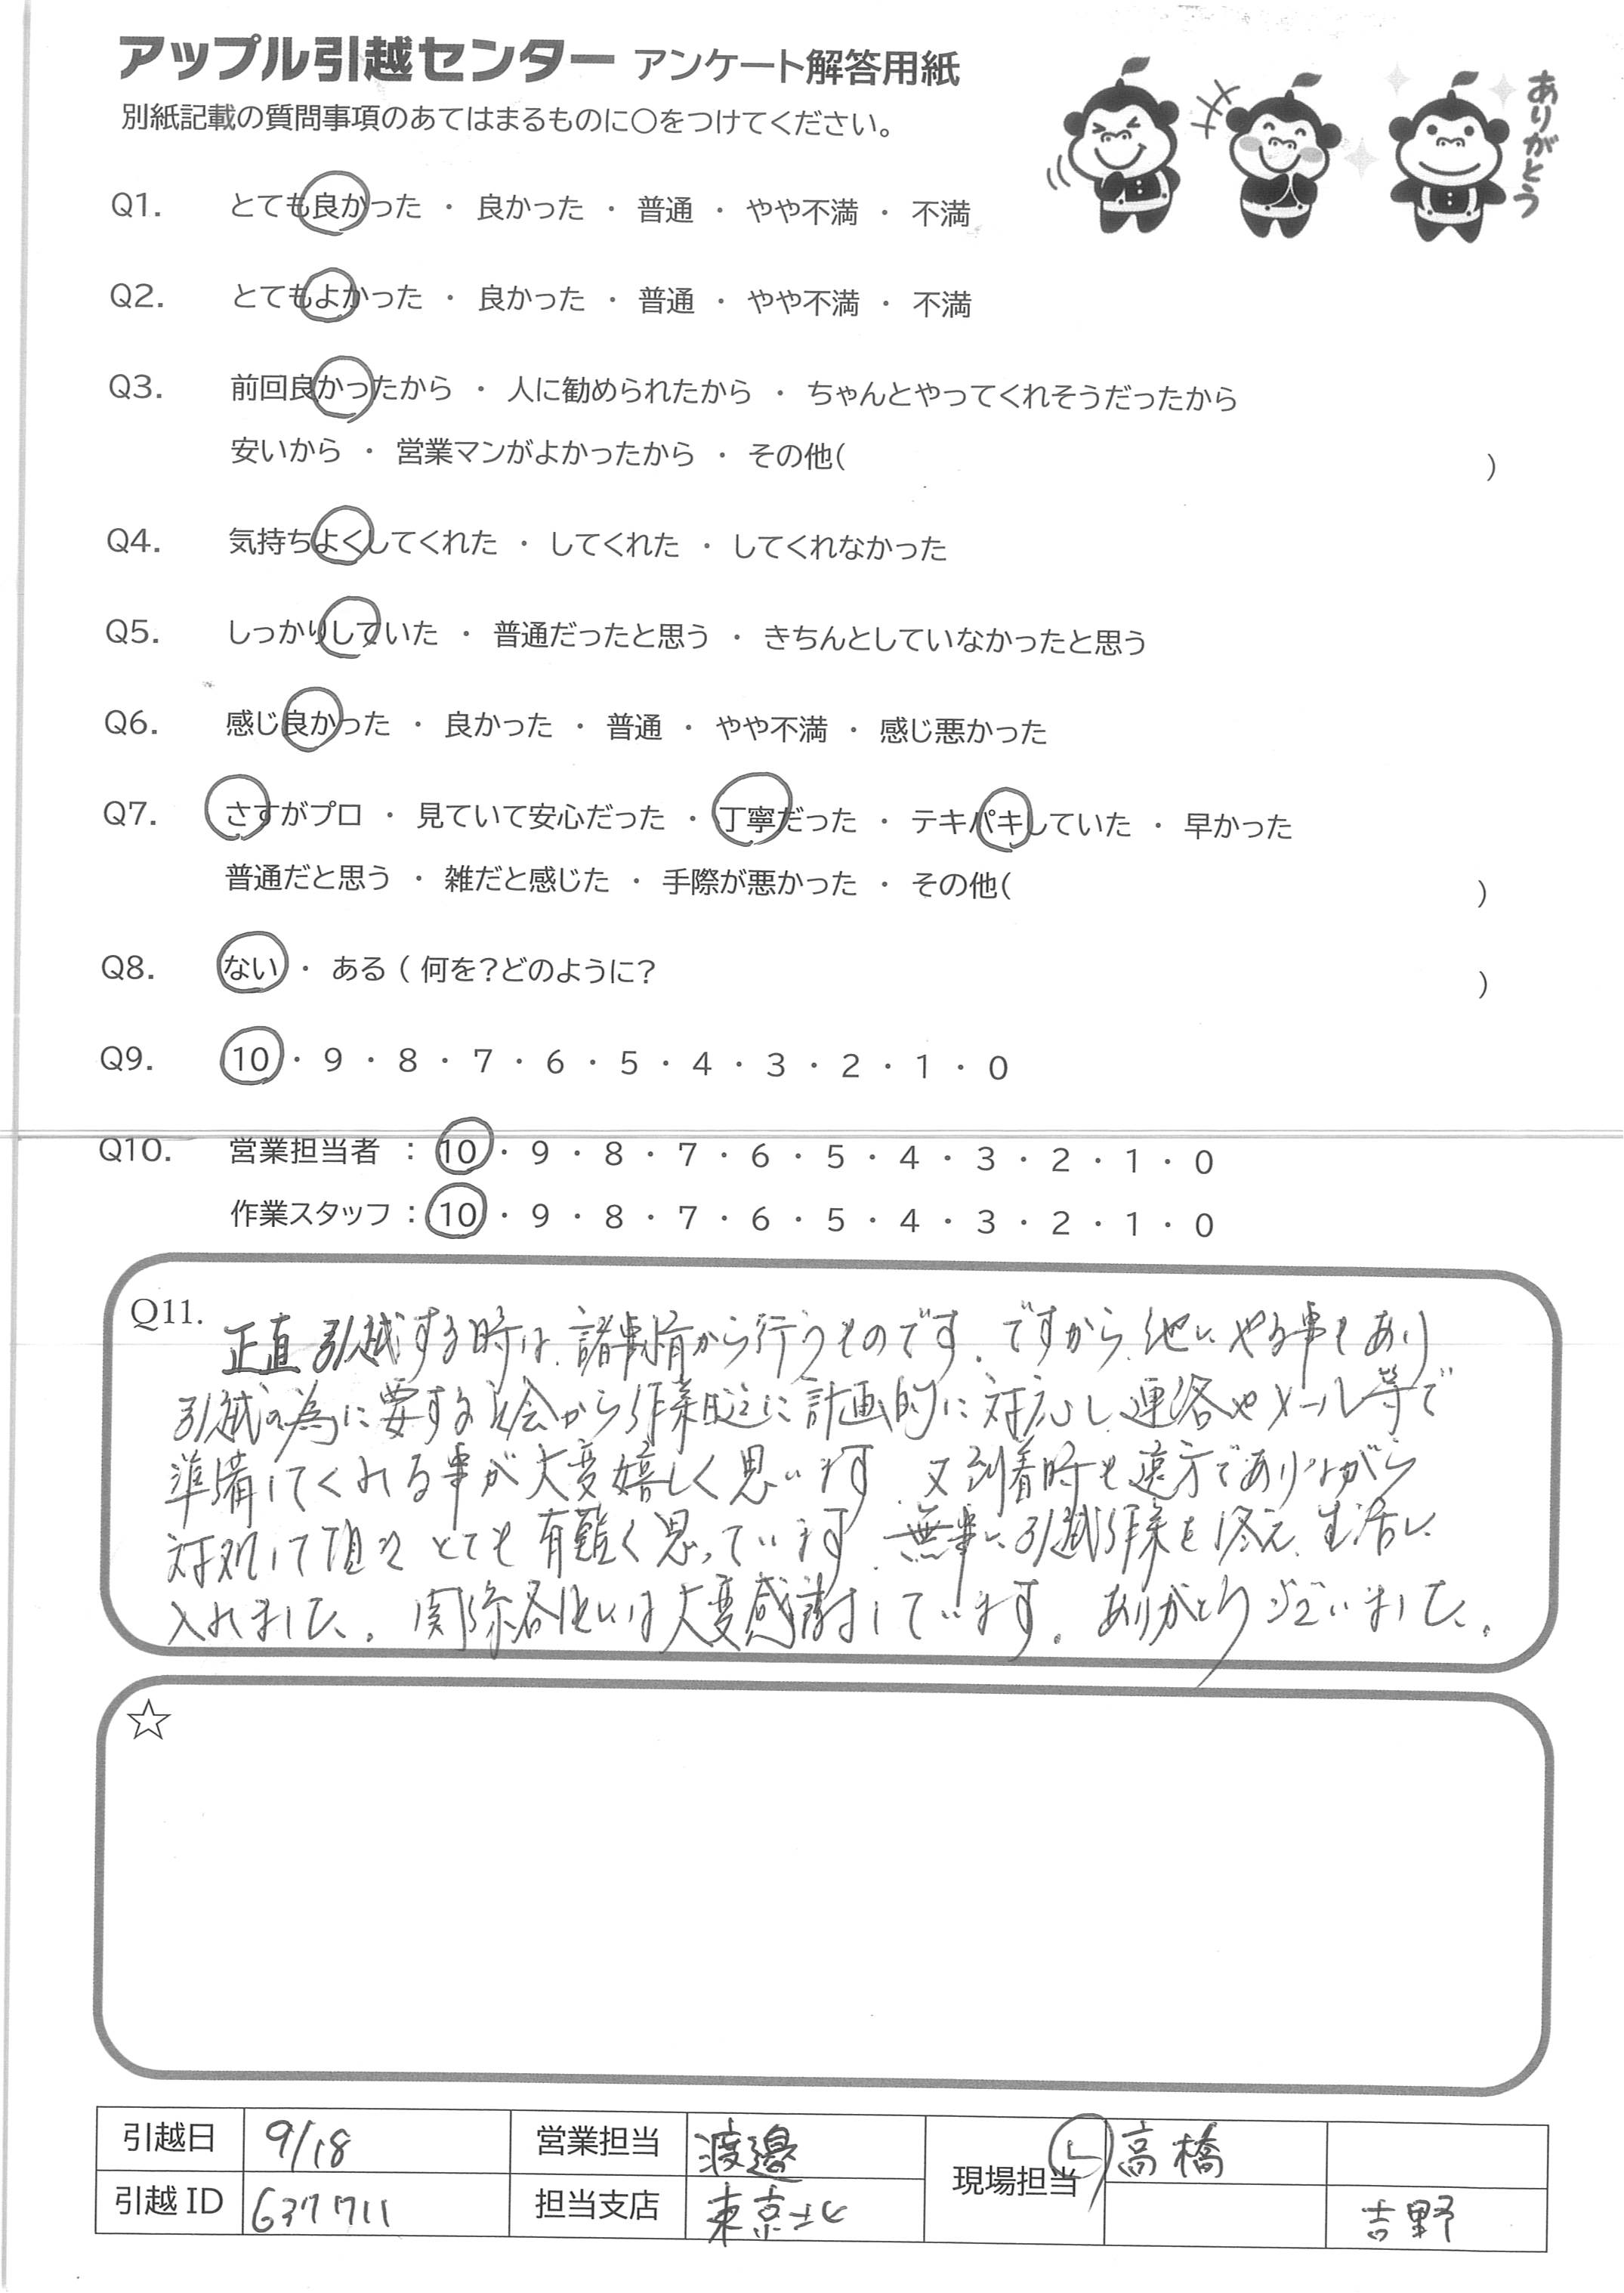 アップル引越センター アンケート解答用紙
別紙記載の質問事項のあてはまるものに○をつけてください。
ありがとう
Q1. とても良かった ・ 良かった ・ 普通 ・ やや不満 ・ 不満
Q2. とてもよかった ・ 良かった ・ 普通 ・ やや不満 ・ 不満
Q3. 前回良かったから ・ 人に勧められたから ・ ちゃんとやってくれそうだったから
安いから ・ 営業マンがよかったから ・ その他( )
Q4. 気持ちよくしてくれた ・ してくれた ・ してくれなかった
Q5. しっかりしていた ・ 普通だったと思う ・ きちんとしていなかったと思う
Q6. 感じ良かった ・ 良かった ・ 普通 ・ やや不満 ・ 感じ悪かった
Q7. さすがプロ ・ 見ていて安心だった ・ 丁寧だった ・ テキパキしていた ・ 早かった
普通だと思う ・ 雑だと感じた ・ 手際が悪かった ・ その他( )
Q8. ない ・ ある ( 何を？どのように？ )
Q9. 10 ・ 9 ・ 8 ・ 7 ・ 6 ・ 5 ・ 4 ・ 3 ・ 2 ・ 1 ・ 0
Q10. 営業担当者 : 10 ・ 9 ・ 8 ・ 7 ・ 6 ・ 5 ・ 4 ・ 3 ・ 2 ・ 1 ・ 0
作業スタッフ : 10 ・ 9 ・ 8 ・ 7 ・ 6 ・ 5 ・ 4 ・ 3 ・ 2 ・ 1 ・ 0
Q11. 正直引越する時は、諸事情から行うものです。ですから、他にやる事もあり
引越の為に要する から作業日迄に計画的に対応し連絡やメール等で
準備してくれる事が大変嬉しく思います。又到着時も遠方でありながら
対処して頂き とても有難く思っています。無事に引越作業を終え、生活に
入れました。関係各位には大変感謝しています。ありがとうございました。
☆
引越日 9/18 営業担当 渡邉 現場担当 L 高橋
引越ID 637711 担当支店 東京北 吉野